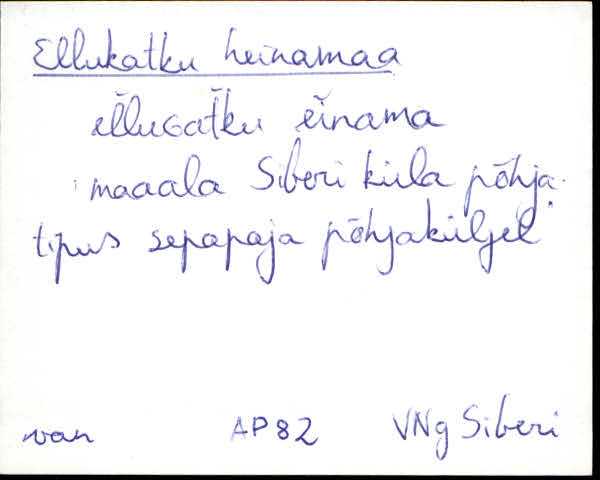 Ellukatku heinamaa
ĕllᴜGaťku ĕinama
maaala Siberi küla põhja-
tipus sepapaja põhjaküljel
van AP82 VNg Siberi